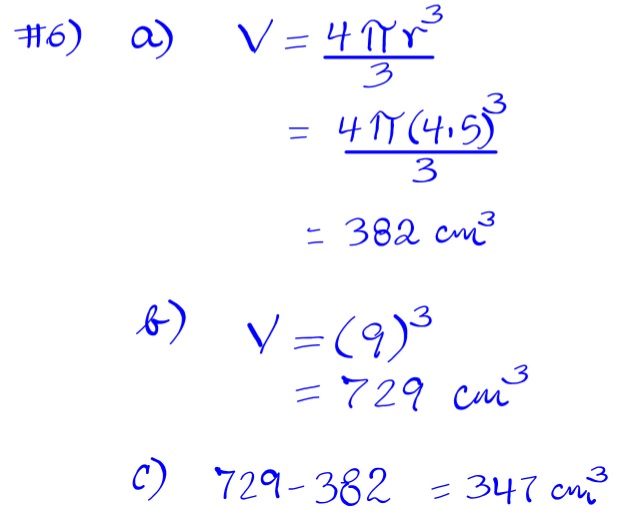 #6) a) V = 4πr³/3
= 4π(4.5)³/3
= 382 cm³
b) V = (9)³
= 729 cm³
c) 729 - 382 = 347 cm³